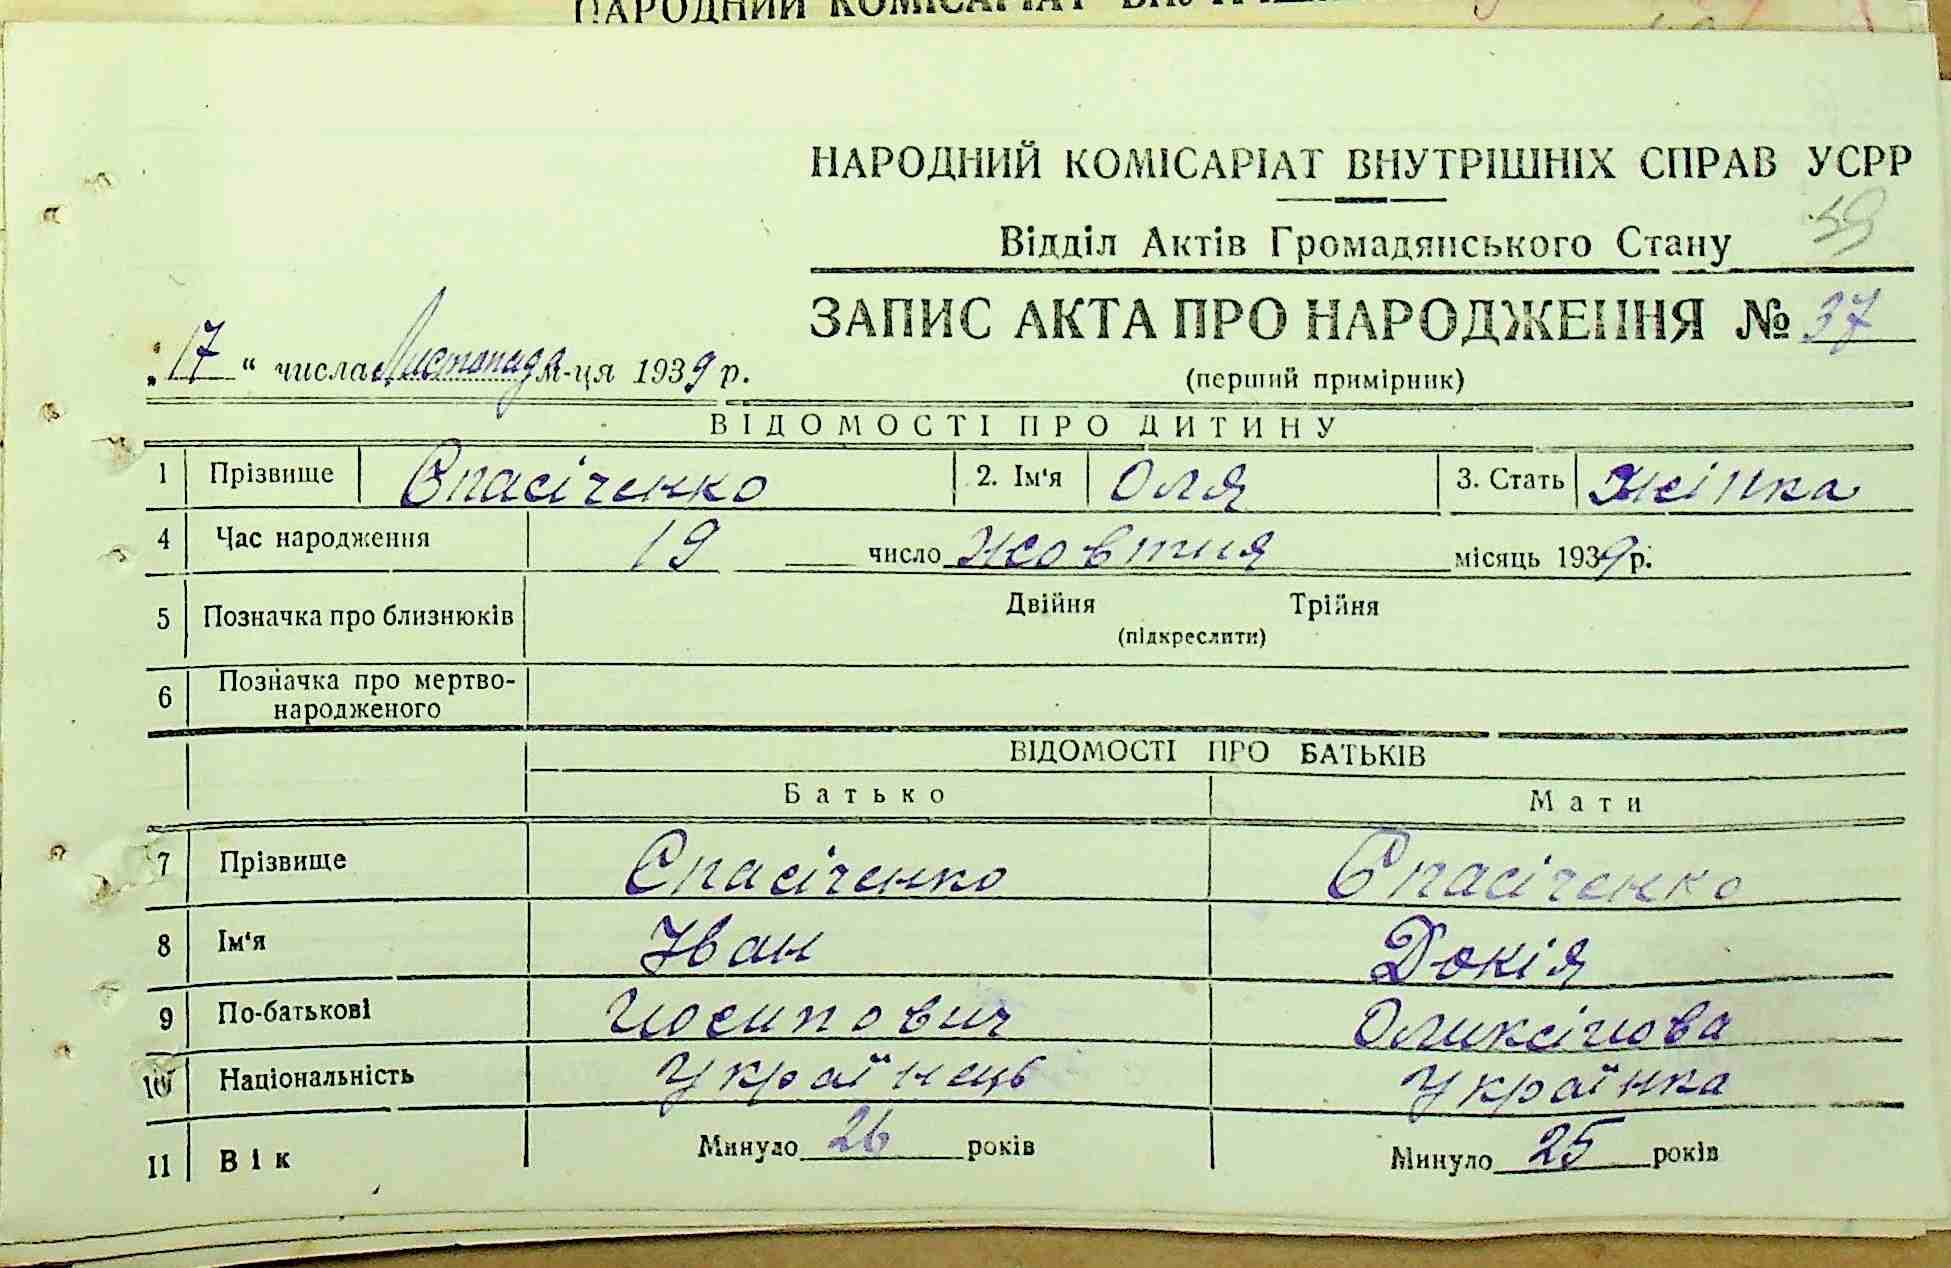 НАРОДНИЙ КОМІСАРІАТ
НАРОДНИЙ КОМІСАРІАТ ВНУТРІШНІХ СПРАВ УСРР
Відділ Актів Громадянського Стану
59
ЗАПИС АКТА ПРО НАРОДЖЕННЯ № 37
„17“ числа Листопада м-ця 1939 р.
(перший примірник)
ВІДОМОСТІ ПРО ДИТИНУ
1 Прізвище Спасіченко 2. Ім‘я Оля 3. Стать Жінка
4 Час народження 19 число жовтня місяць 1939 р.
5 Позначка про близнюків Двійня Трійня
(підкреслити)
6 Позначка про мертво-
народженого
ВІДОМОСТІ ПРО БАТЬКІВ
Батько Мати
7 Прізвище Спасіченко Спасіченко
8 Ім‘я Іван Докія
9 По-батькові Иосипович Оликсіиова
10 Національність Українець Українка
11 Вік Минуло 26 років Минуло 25 років